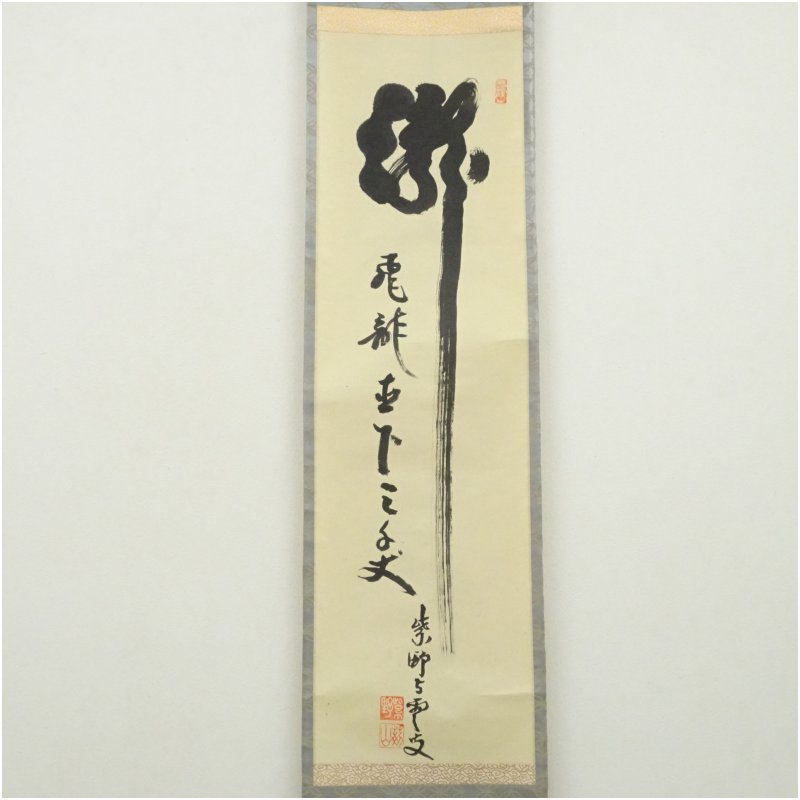 瀧
飛龍直下三千丈
紫野